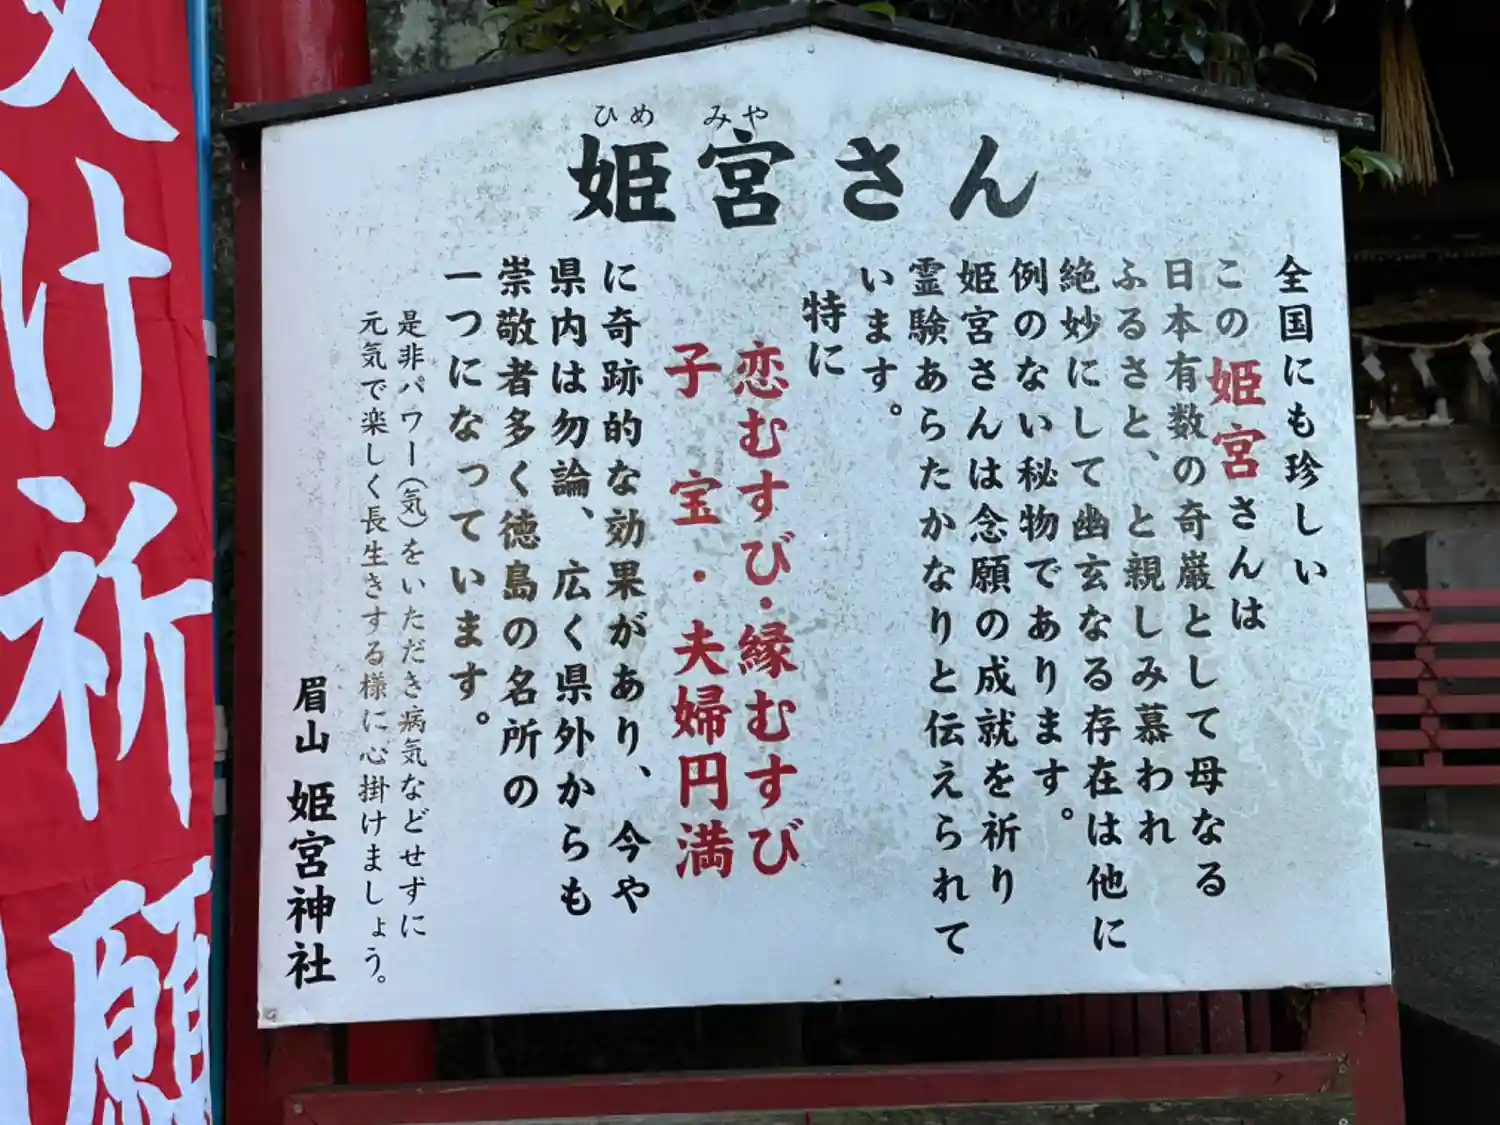 ひめ みや
姫宮さん
全国にも珍しい
この姫宮さんは
日本有数の奇巌として母なる
ふるさと、と親しみ慕われ
絶妙にして幽玄なる存在は他に
例のない秘物であります。
姫宮さんは念願の成就を祈り
霊験あらたかなりと伝えられて
います。
特に
恋むすび・縁むすび
子宝・夫婦円満
に奇跡的な効果があり、今や
県内は勿論、広く県外からも
崇敬者多く徳島の名所の
一つになっています。
是非パワー(気)をいただき病気などせずに
元気で楽しく長生きする様に心掛けましょう。
眉山 姫宮神社
け祈願